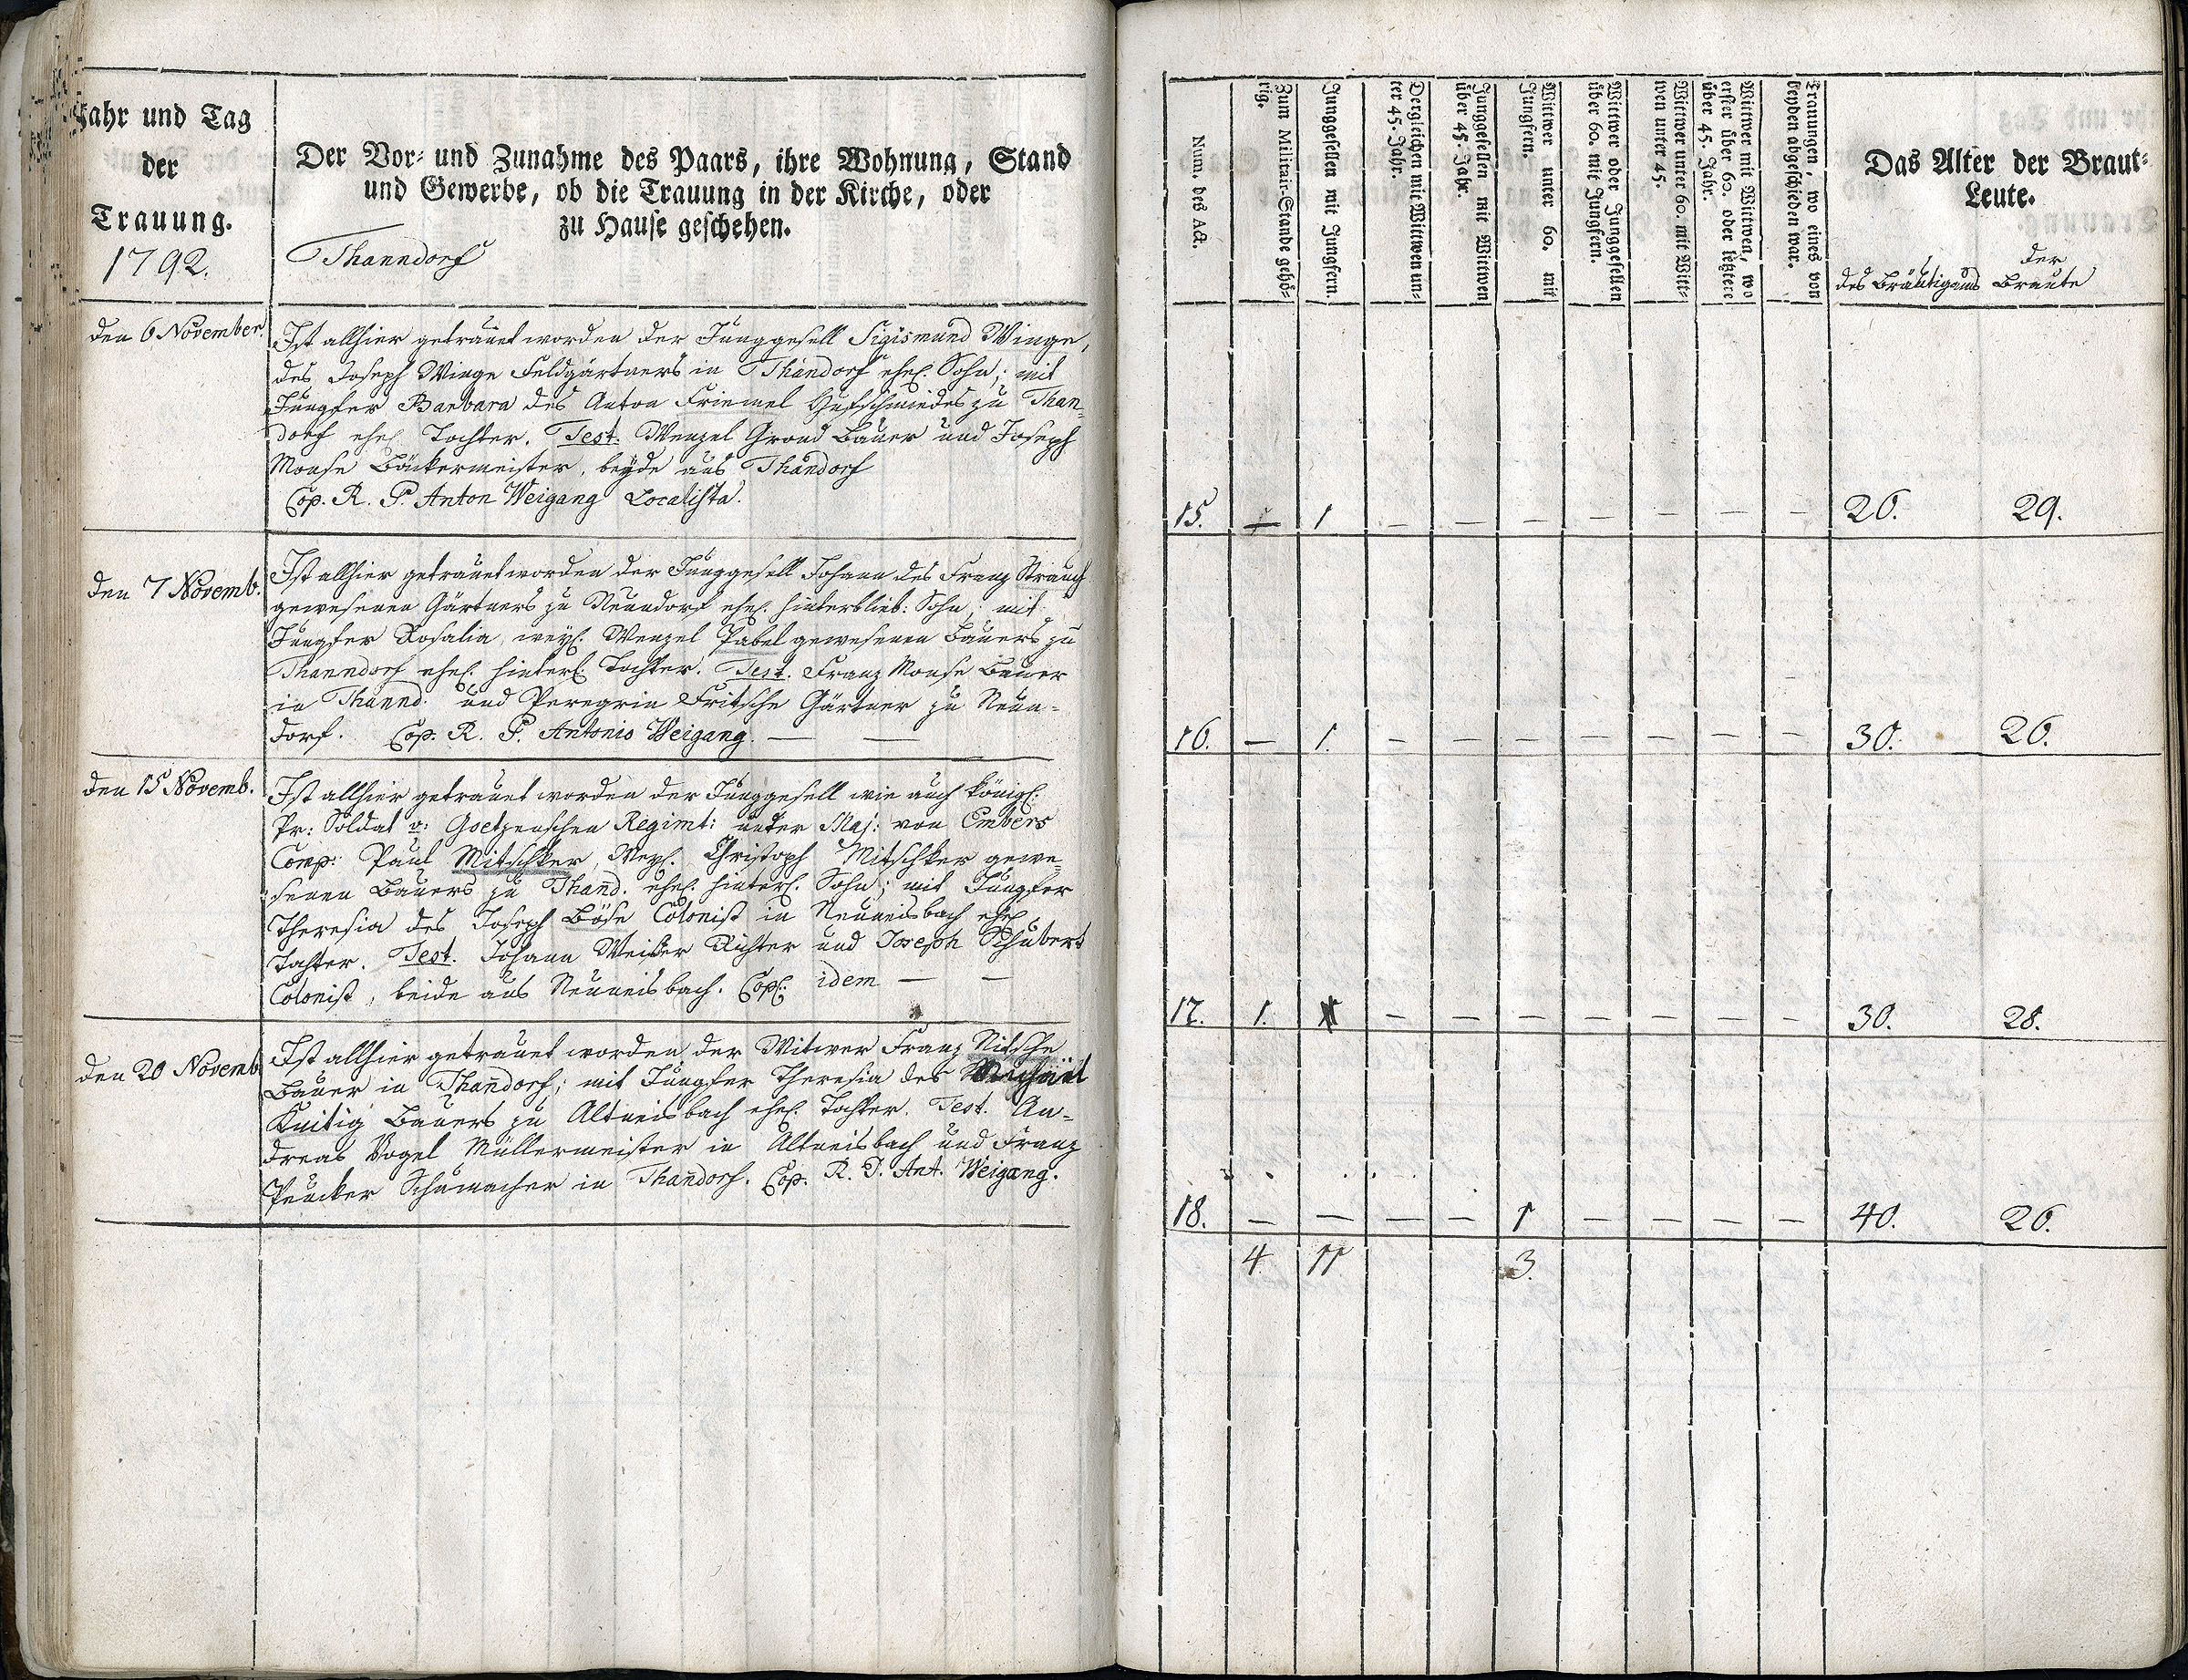 Jahr und Tag
der
Trauung.
1792.
Der Vor- und Zunahme des Paars, ihre Wohnung, Stand
und Gewerbe, ob die Trauung in der Kirche, oder
zu Hause geschehen.
Thanndorf
den 6 November.
Ist allhier getrauet worden der Junggesell Sigismund Winge,
des Joseph Winge Feldgärtners in Thandorf ehel. Sohn; mit
Jungfer Barbara des Anton Friemel Hufschmiedes zu Than-
dorf ehel. Tochter. Test. Wenzel Grond Bauer und Joseph
Monse Bäckermeister, beyde aus Thandorf
Cop. R. P. Anton Weigang Localista.
den 7 Novemb.
Ist allhier getrauet worden der Junggesell Johann des Franz Strauch
gewesenen Gärtners zu Neundorf ehel. hinterblieb: Sohn; mit
Jungfer Rosalia, weyl. Wenzel Pabel gewesenen Bauers zu
Thanndorf ehel. hinterl. Tochter. Test. Franz Monse Bauer
in Thannd. und Peregrin Fritsche Gärtner zu Neun-
dorf. Cop. R. P. Antonio Weigang. — —
den 15 Novemb.
Ist allhier getrauet worden der Junggesell wie auch königl:
Pr: Soldat v: Goetzenschen Regimt: unter Maj: von Embers
Comp: Paul Mitschker, Weyl. Christoph Mitschker gewe-
senen Bauers zu Thand. ehel. hinterl. Sohn; mit Jungfer
Theresia des Joseph Böse Colonist in Neuneisbach ehel.
Tochter. Test. Johann Weiser Richter und Joseph Schubert
Colonist, beide aus Neuneisbach. Cop: idem — —
den 20 Novemb.
Ist allhier getrauet worden der Witwer Franz Nitsche
Bauer in Thandorf; mit Jungfer Theresia des Michael
Knitig Bauers zu Altneisbach ehel. Tochter. Test. An-
dreas Vogel Müllermeister in Altneisbach und Franz
Peucker Schumacher in Thandorf. Cop. R. P. Ant. Weigang.
Num. des Act.
Zum Militair-Stande gehö-
rig.
Junggesellen mit Jungfern.
Dergleichen mit Wittwen un-
ter 45. Jahr.
Junggesellen mit Wittwen
über 45. Jahr.
Wittwer unter 60. mit
Jungfern.
Wittwer oder Junggesellen
über 60. mit Jungfern.
Wittwer unter 60. mit Witt-
wen unter 45.
Wittwer mit Wittwen, wo
erster über 60. oder letztere
über 45. Jahr.
Trauungen, wo eines von
beyden abgeschieden war.
Das Alter der Braut-
Leute.
des Bräutigams
der
Braute
15. — 1 — — — — — — — 26. 29.
16. — 1. — — — — — — — 30. 26.
17. 1. — — — — — — — 30. 28.
18. — — — — 1 — — — — 40. 26.
4 11 3.